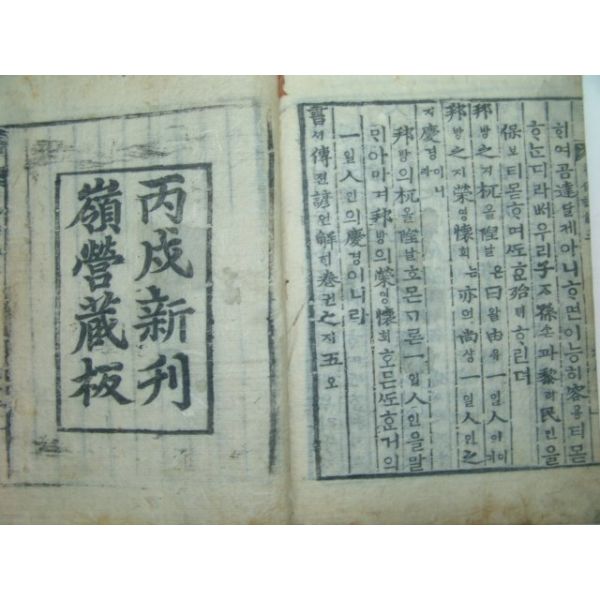 히여곰達달케아니ᄒᆞ면이능히容용티몯
ᄒᆞᄂᆞᆫ디라ᄡᅥ우리子ᄌᆞ孫손과黎려民민을
保보티몯ᄒᆞ며ᄯᅩᄒᆞᆫ殆ᄐᆡᄒᆞ린뎌
邦방之지杌올隉날은曰왈由유一일人인이
邦방之지榮영懷회는亦의尚상一일人인之
지慶경이니라
邦방의杌올隉날호몬ᄀᆞᆯ온一일人인을말
邦방의榮영懷회호믄ᄯᅩᄒᆞᆫ거의
一일人인의慶경이니라
書셔傳젼諺언解ᄒᆡ卷권之지五오
丙戌新刊
嶺營藏板